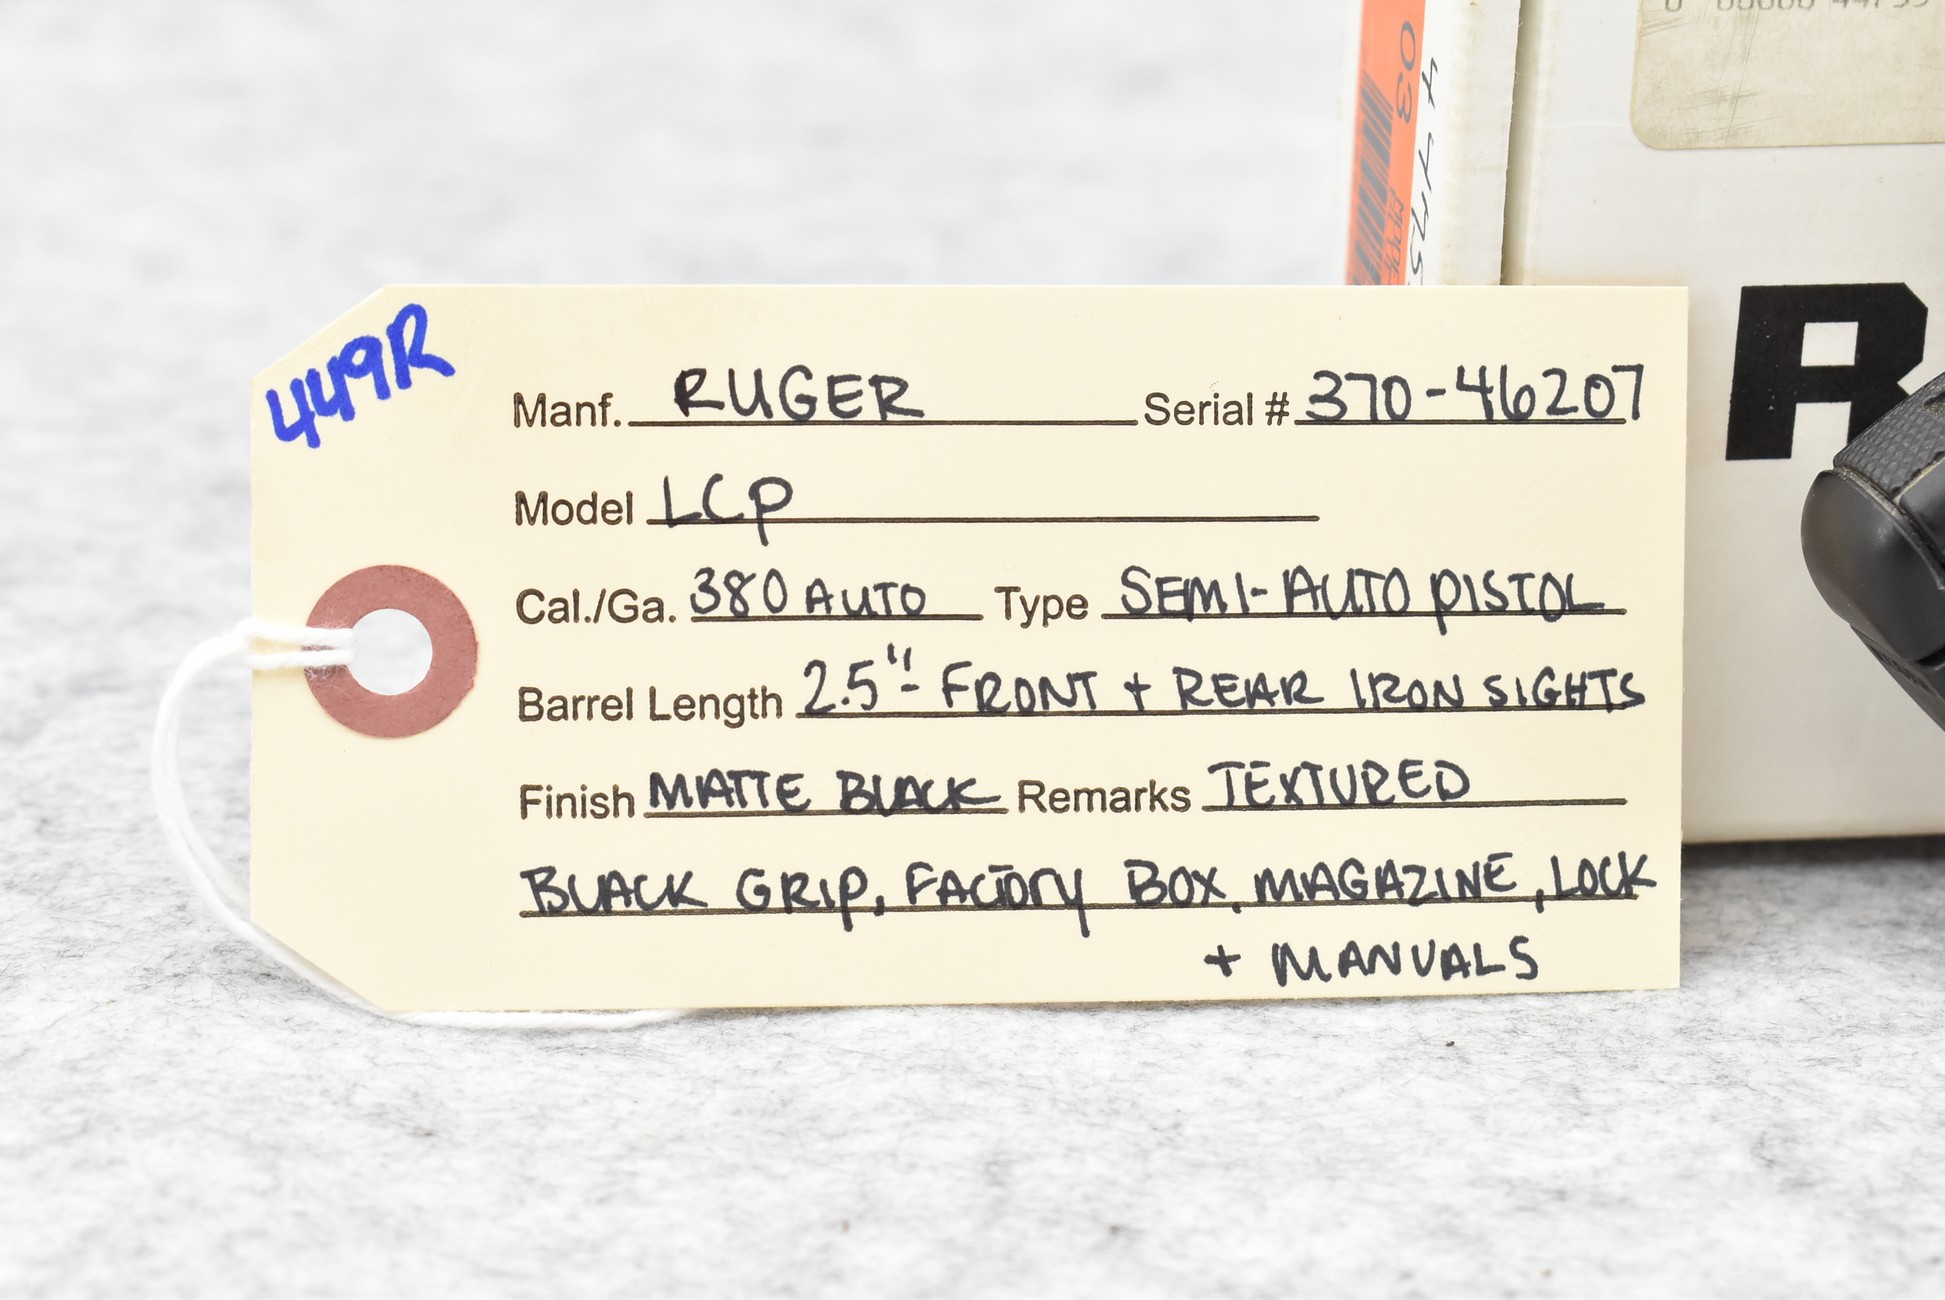 449R
Manf. RUGER Serial # 370-46207
Model LCP
Cal./Ga. 380 AUTO Type SEMI-AUTO PISTOL
Barrel Length 2.5"- FRONT + REAR IRON SIGHTS
Finish MATTE BLACK Remarks TEXTURED
BLACK GRIP, FACTORY BOX, MAGAZINE, LOCK
+ MANUALS
03
R